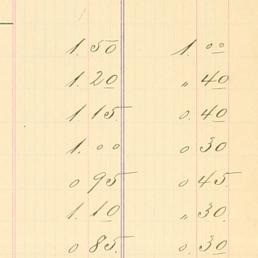 1. 50 1. 00
1. 20 " 40
1 15 0. 40
1. 00 0 30
0 95 0 45
1. 10 " 30
0 85 0. 30